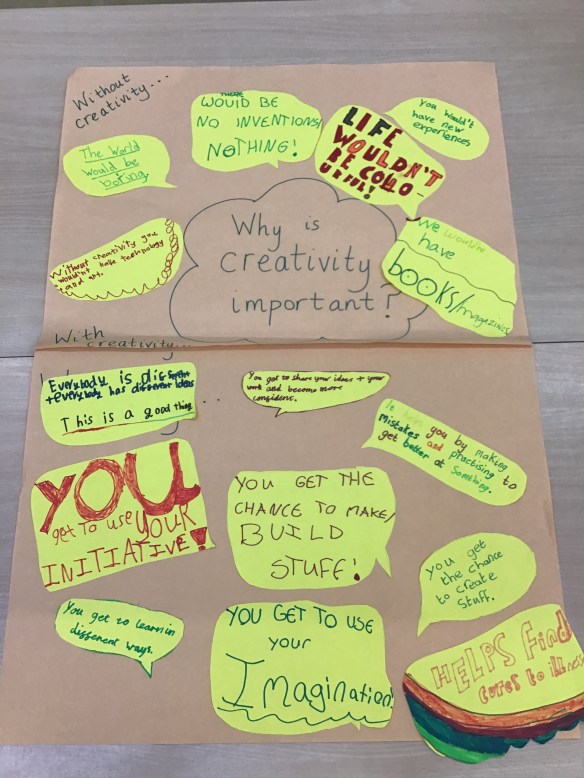 Without
creativity...
THERE
WOULD BE
NO INVENTIONS/
NOTHING!
You Wouldn't
have new
experiences
LIFE
WOULDN'T
BE COLO
URFUL!
The World
Would be
boring
Why is
creativity
important?
Without creativity you
wouldn't have technology
and art.
We wouldn't
have
BOOKS/
magazines
With
creativity...
Everybody is different
+ everybody has different ideas
This is a good thing
You got to share your ideas + your
work and become more
confident.
It you by making
mistakes and practising to
get better at something.
YOU
get to use YOUR
INITIATIVE!
YOU GET THE
CHANCE TO MAKE/
BUILD
STUFF!
You get
the chance
to create
stuff.
You get to learn in
different ways.
YOU GET TO USE
your
Imagination!
HELPS Find
cures to illness